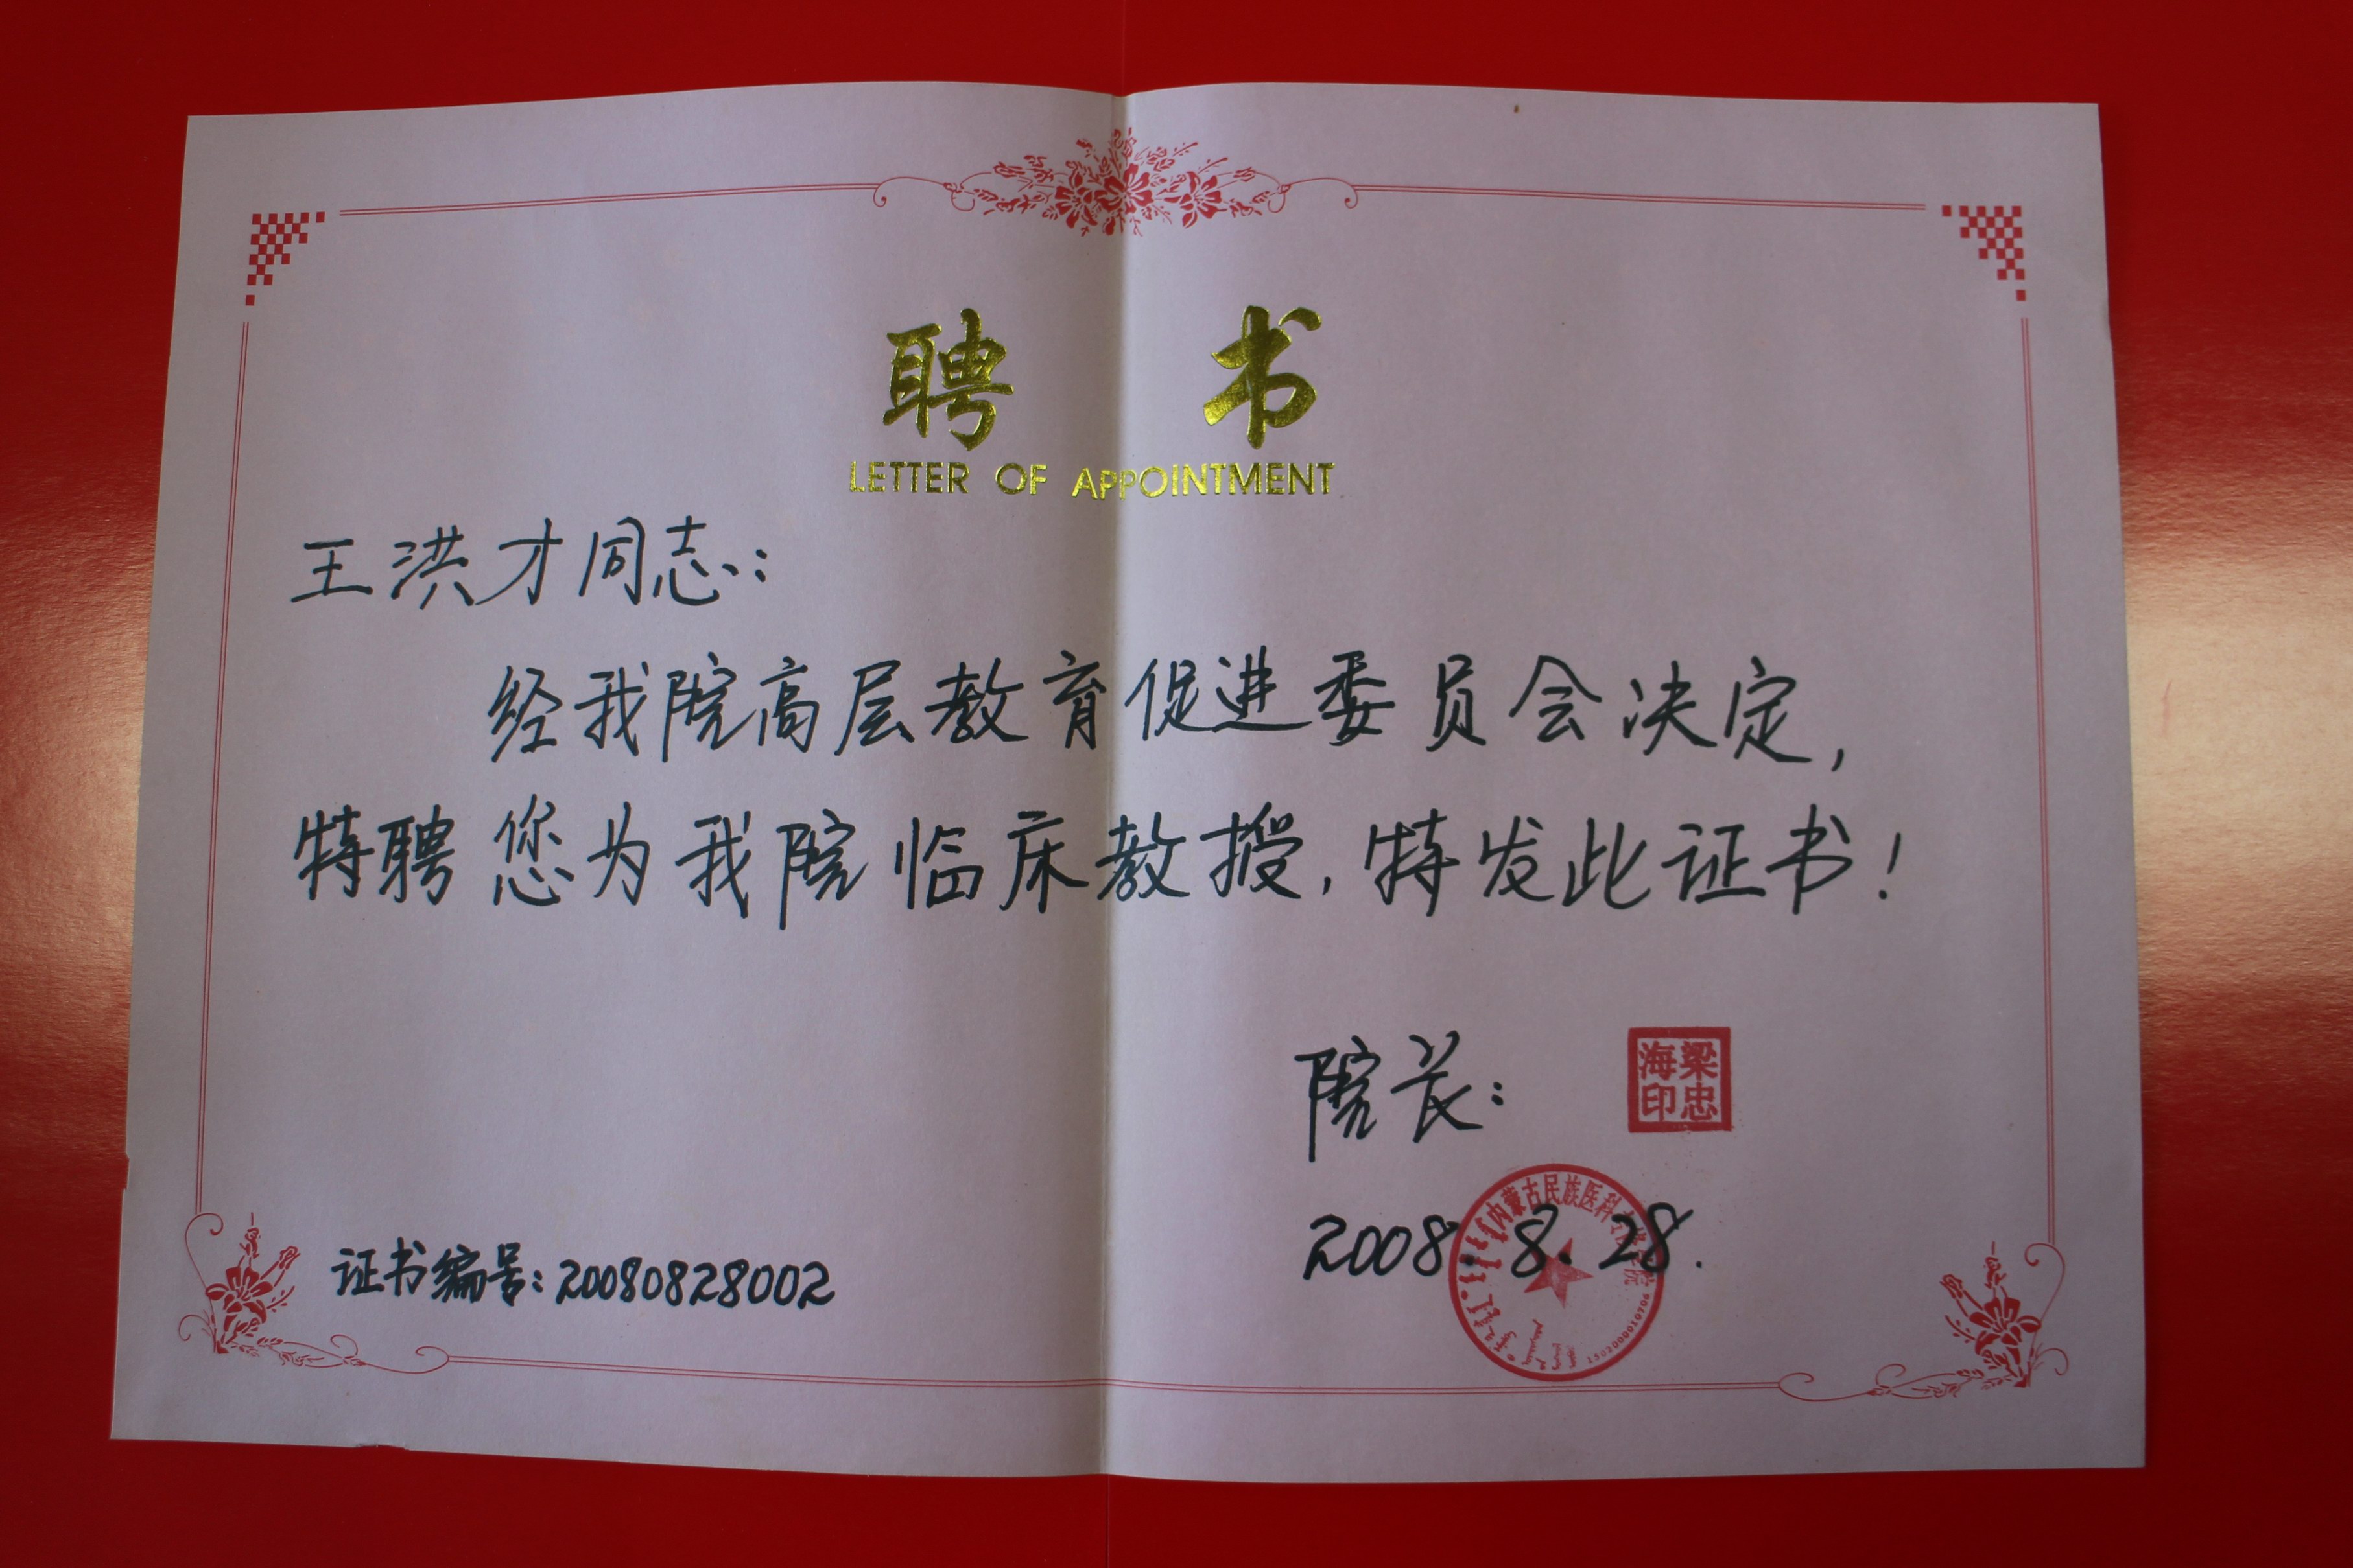 聘 书
LETTER OF APPOINTMENT
王洪才同志：
经我院高层教育促进委员会决定，
特聘您为我院临床教授，特发此证书！
院长：
梁忠海印
2008.8.28.
内蒙古民族医科专修学院
1502000010706
证书编号：20080828002